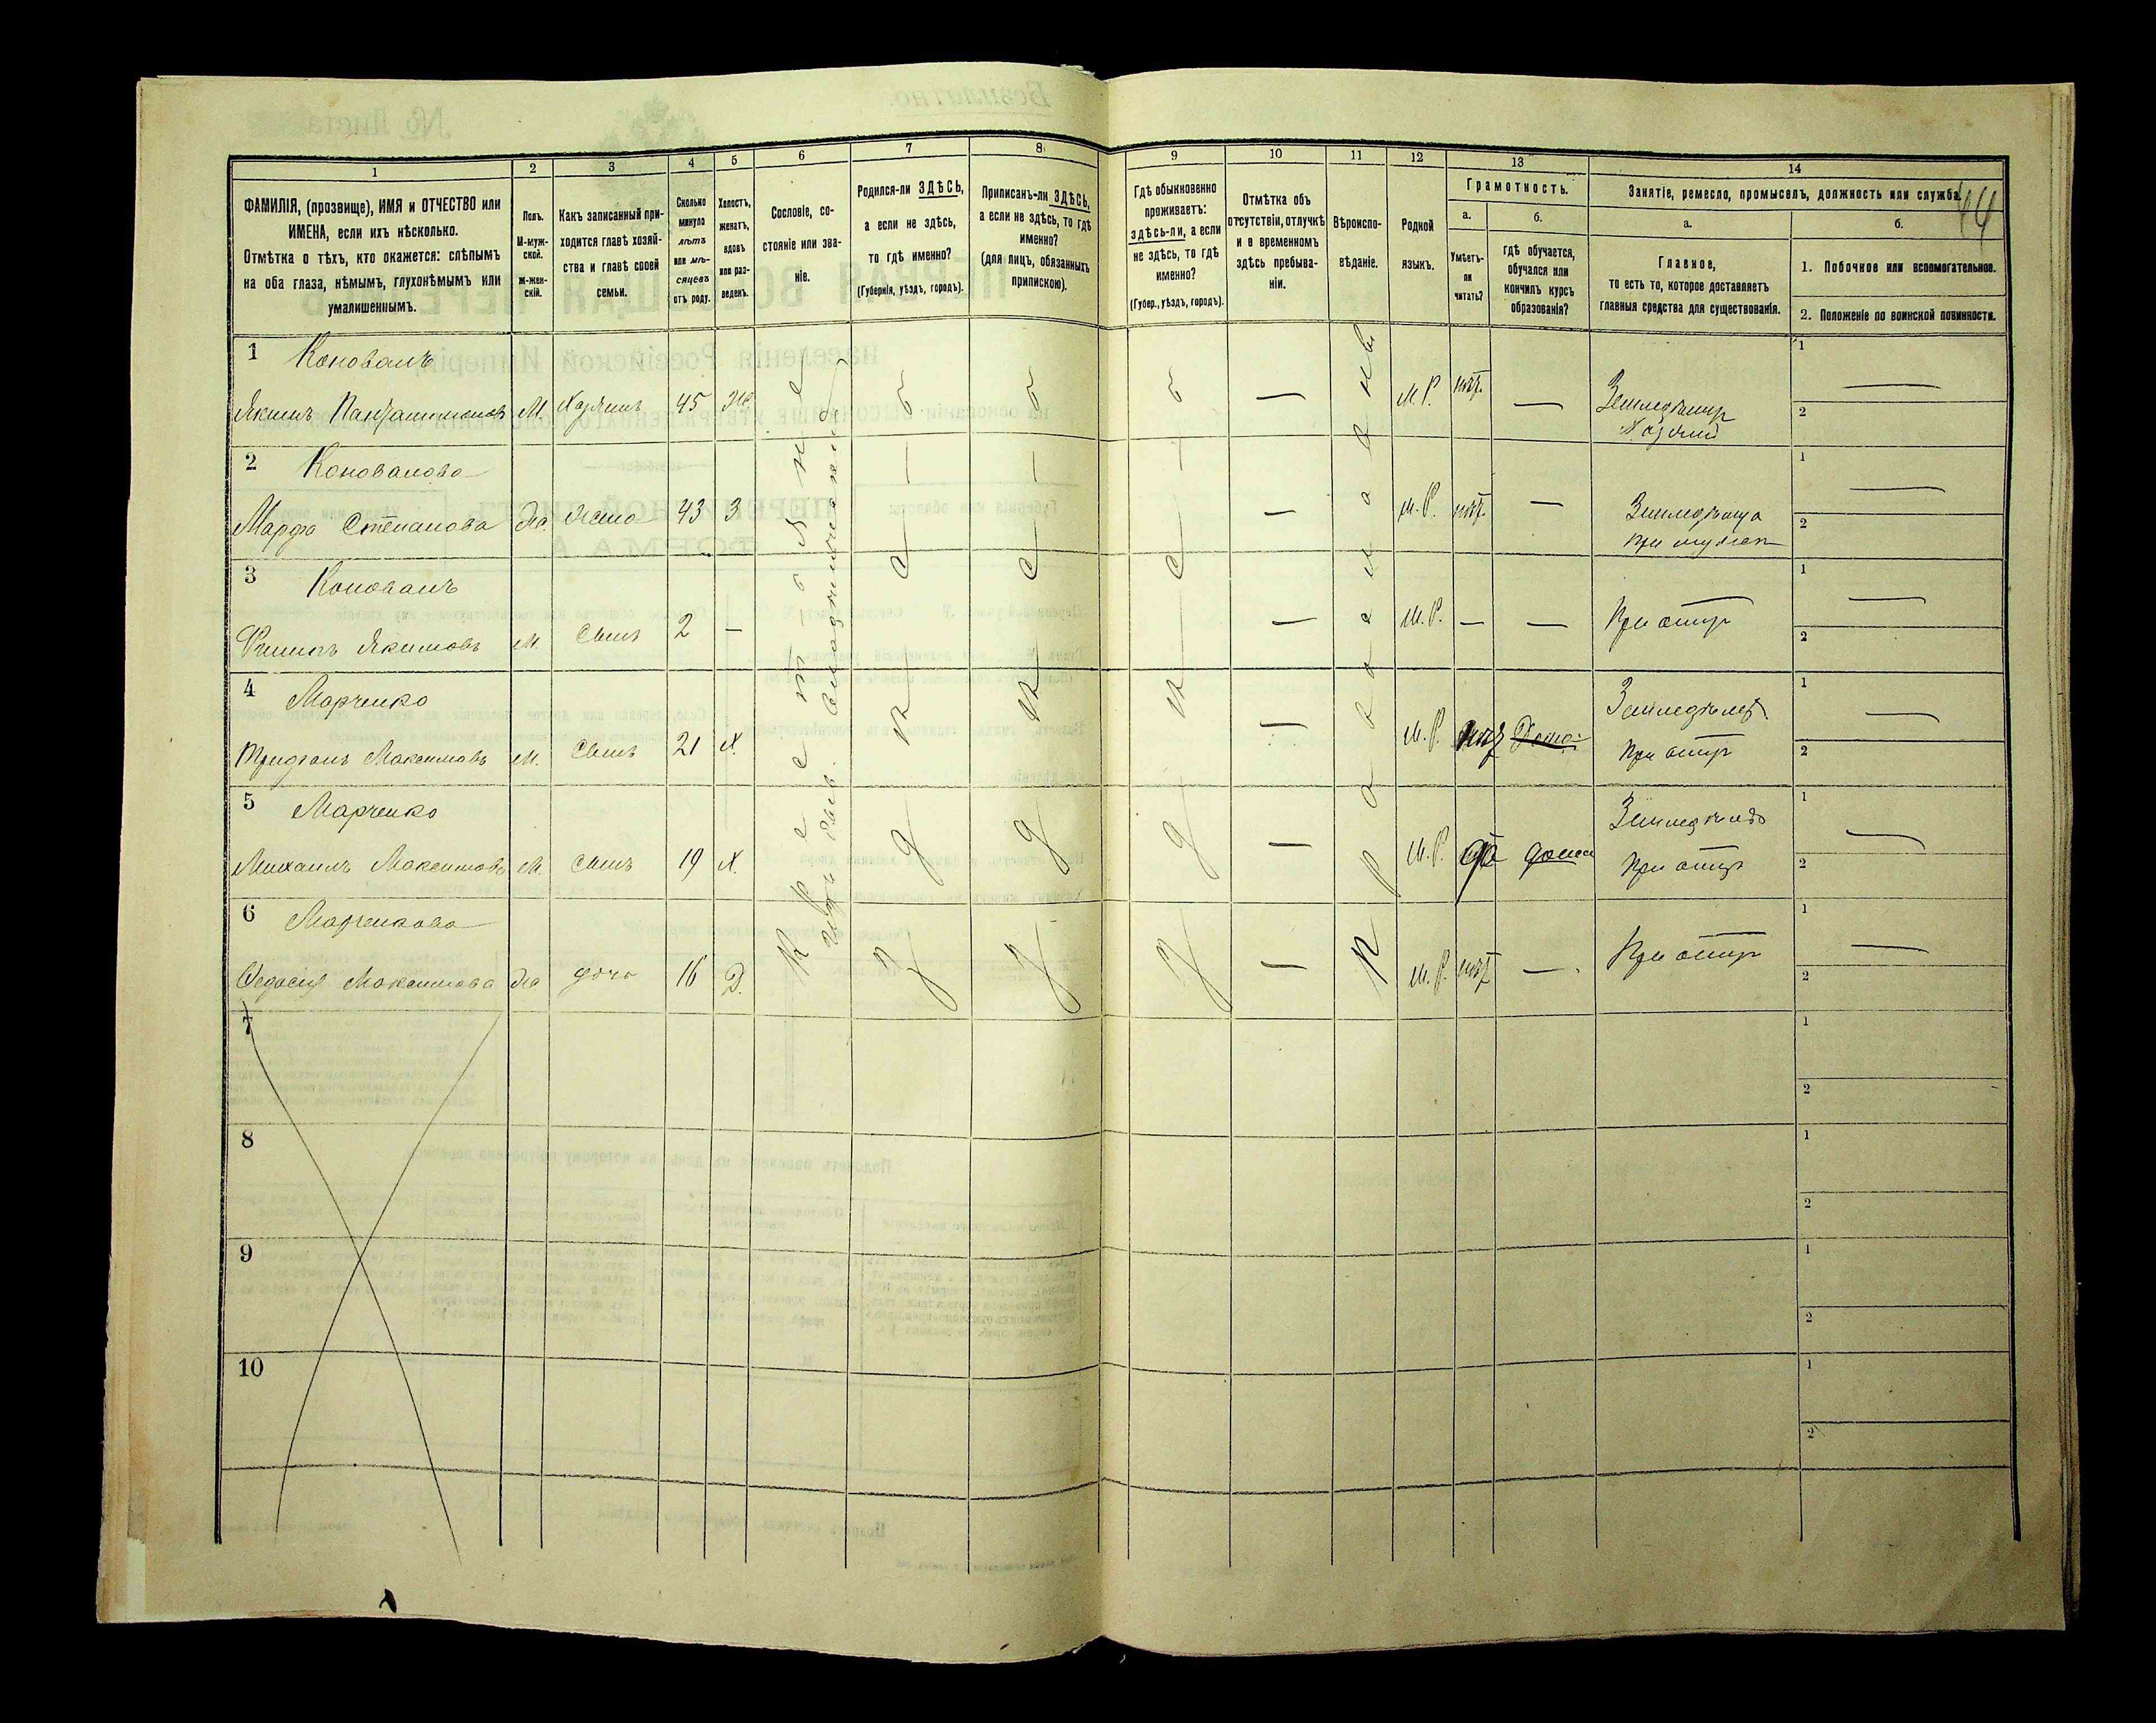 1 2 3 4 5 6 7 8 9 10 11 12 13 14
ФАМИЛІЯ, (прозвище), ИМЯ и ОТЧЕСТВО или
ИМЕНА, если ихъ нѣсколько.
Отмѣтка о тѣхъ, кто окажется: слѣпымъ
на оба глаза, нѣмымъ, глухонѣмымъ или
умалишеннымъ.
Полъ.
М-муж-
ской.
Ж-жен-
скій.
Какъ записанный при-
ходится главѣ хозяй-
ства и главѣ своей
семьи.
Сколько
минуло
лѣтъ
или мѣ-
сяцевъ
отъ роду.
Холостъ,
женатъ,
вдовъ
или раз-
веденъ.
Сословіе, со-
стояніе или зва-
ніе.
Родился-ли ЗДѢСЬ,
а если не здѣсь,
то гдѣ именно?
(Губернія, уѣздъ, городъ).
Приписанъ-ли ЗДѢСЬ,
а если не здѣсь, то гдѣ
именно?
(для лицъ, обязанныхъ
припискою).
Гдѣ обыкновенно
проживаетъ:
здѣсь-ли, а если
не здѣсь, то гдѣ
именно?
(Губер., уѣздъ, городъ).
Отмѣтка объ
отсутствіи, отлучкѣ
и о временномъ
здѣсь пребыва-
ніи.
Вѣроиспо-
вѣданіе.
Родной
языкъ.
Грамотность.
а.
Умѣетъ-
ли
читать?
б.
Гдѣ обучается,
обучался или
кончилъ курсъ
образованія?
Занятіе, ремесло, промыселъ, должность или служба.
44
а.
Главное,
то есть то, которое доставляетъ
главныя средства для существованія.
б.
1. Побочное или вспомогательное.
2. Положеніе по воинской повинности.
1 Коновалъ
Якимъ Пантелимоновъ М. Хозяинъ 45 Ж — М.Р. нѣт. —
Земледѣлец
Хозяинъ
1 —
2
2 Коновалова
Марфа Степанова Ж. Жена 43 З — М.Р. нѣт. —
при мужѣ
1 —
2
3 Коновалъ
Якимовъ М. Сынъ 2 — — М.Р. — — При отцѣ
1 —
2
4 Марченко
Максимовъ М. Сынъ 21 Х. — М.Р. нѣт Дома
При отцѣ
1 —
2
5 Марченко
Михаилъ Максимовъ М. Сынъ 19 Х. — М.Р. да дома
При отцѣ
1 —
2
6 Марченкова
Федосія Максимова Ж. дочь 16 Д. — М.Р. нѣт — При отцѣ
1 —
2
Крестьяне
Православный
7
1
2
8
1
2
9
1
2
10
1
2